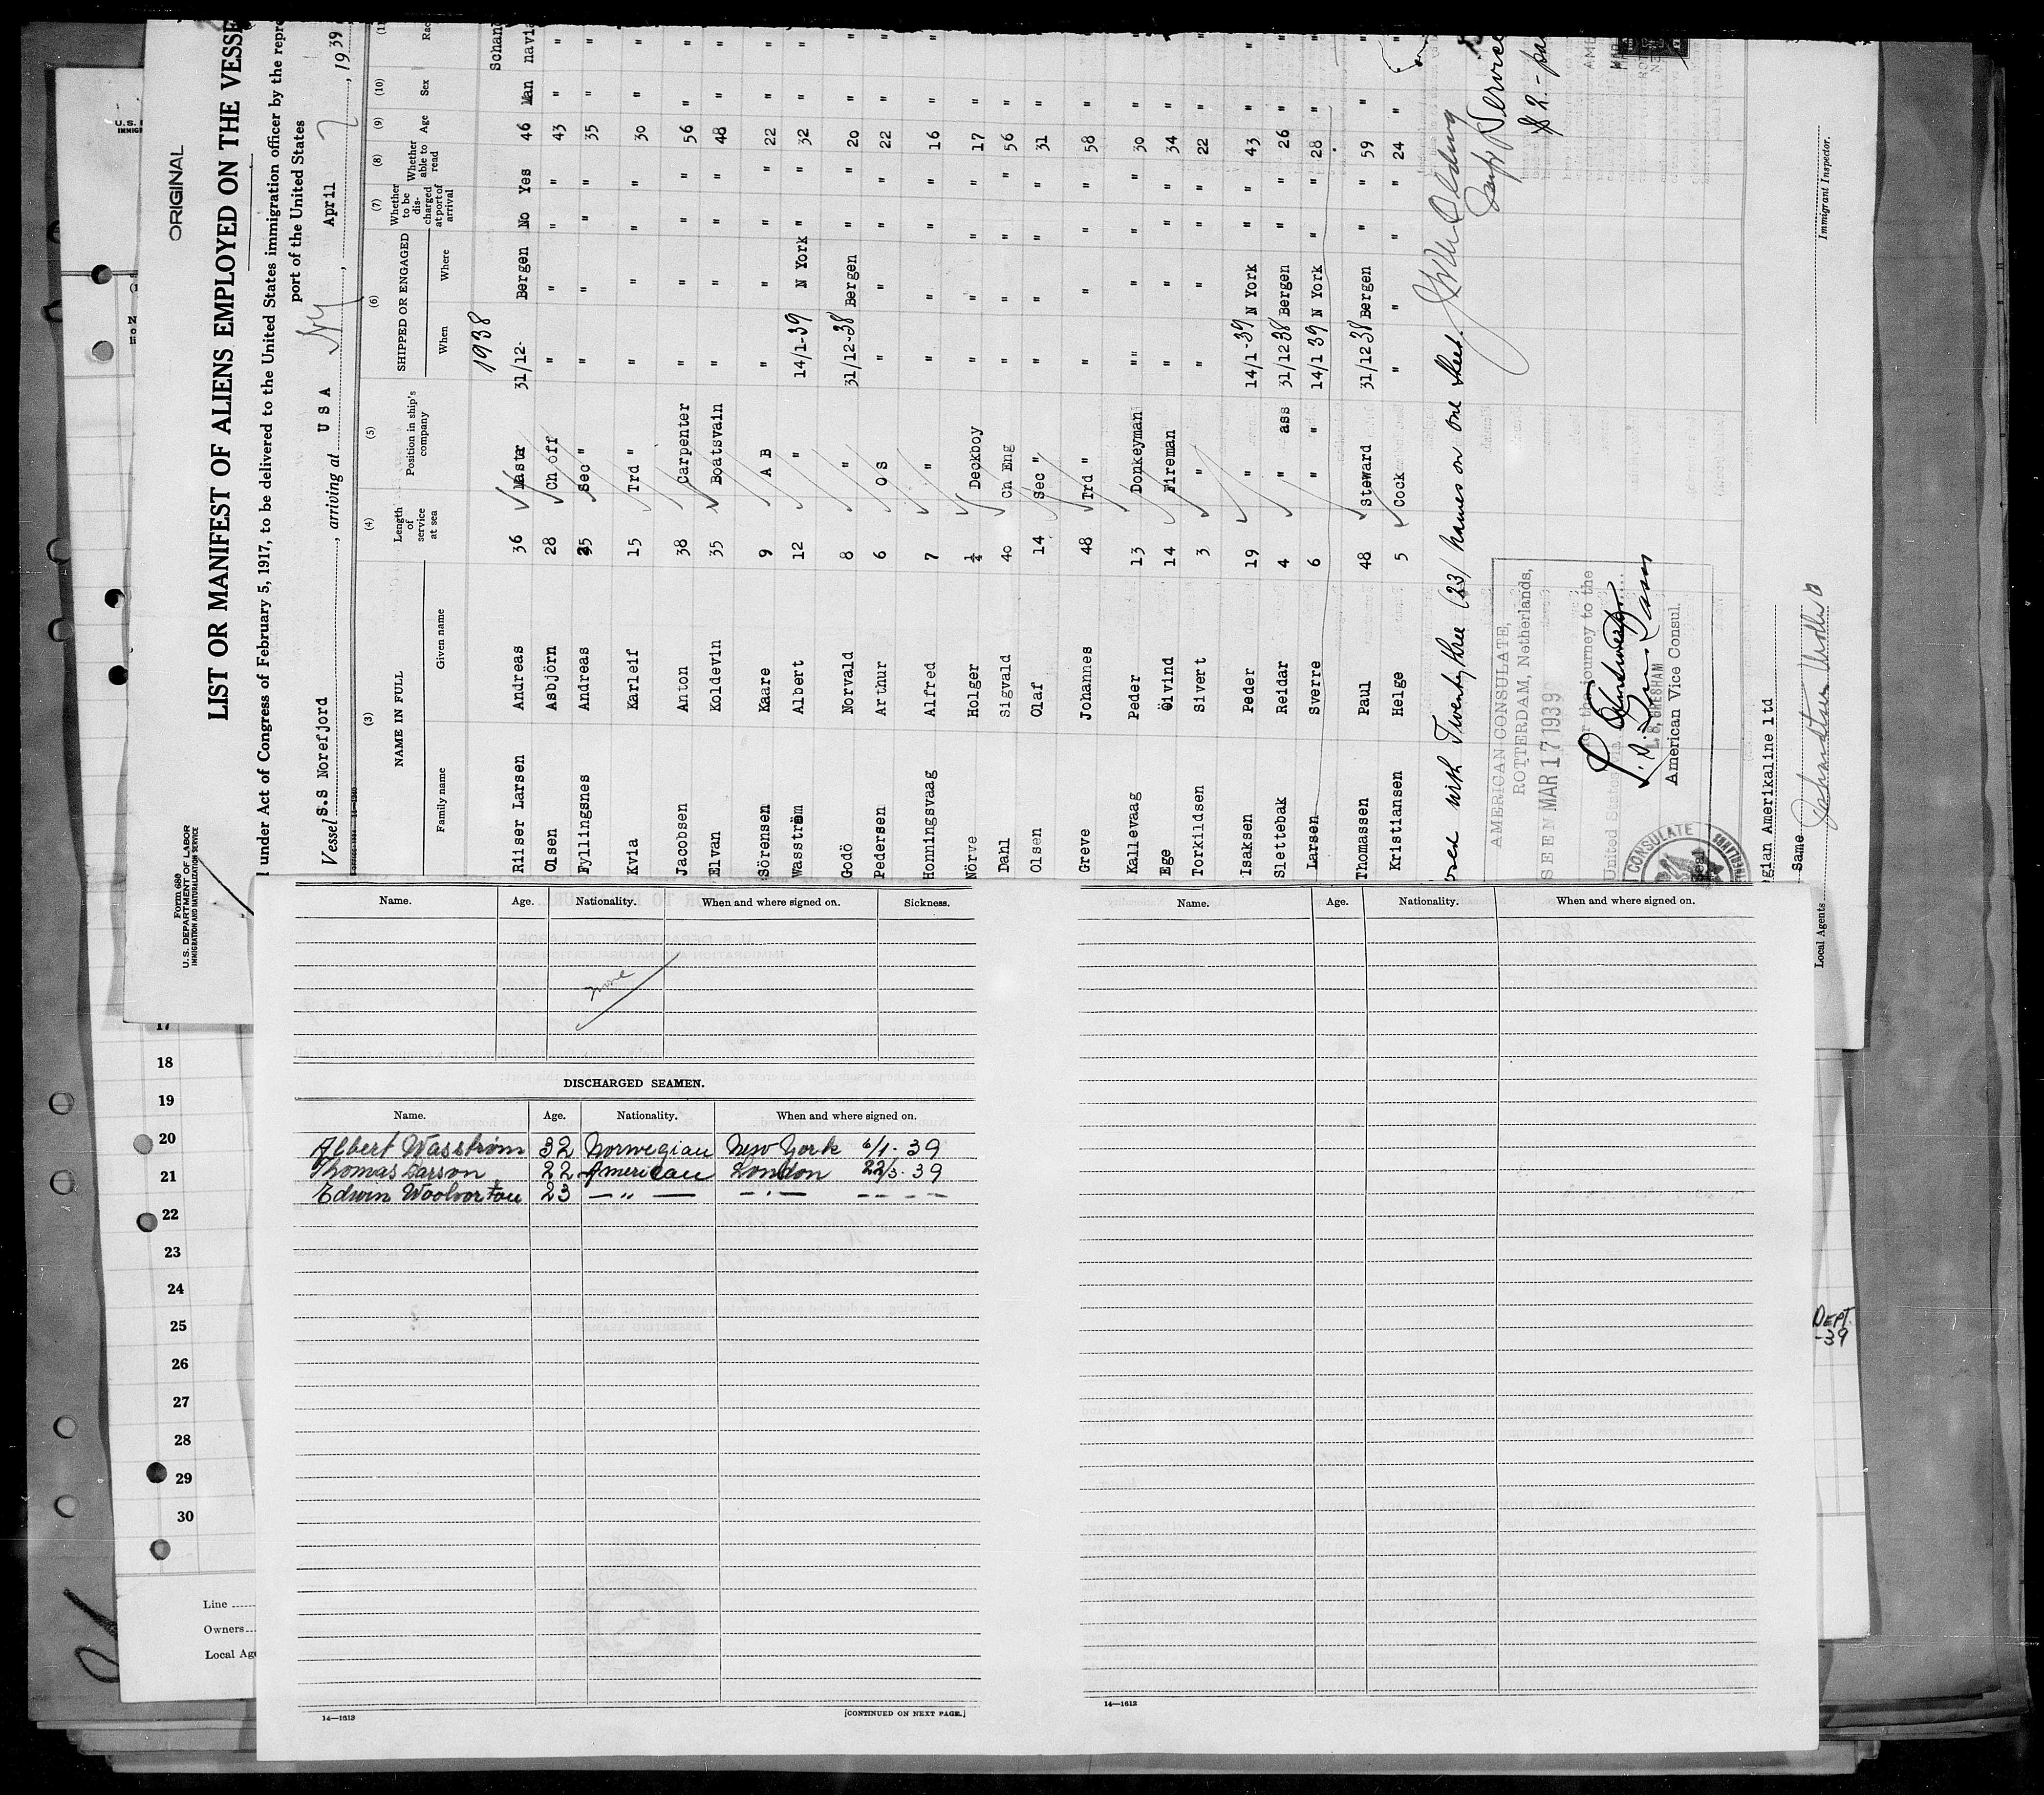 ORIGINAL
Form 680
U. S. DEPARTMENT OF LABOR
IMMIGRATION AND NATURALIZATION SERVICE
LIST OR MANIFEST OF ALIENS EMPLOYED ON THE VESSE
under Act of Congress of February 5, 1917, to be delivered to the United States immigration officer by the repre
port of the United States
Vessel S.S Norefjord, arriving at U S A NY, April 7, 1939
(3) (4) (5) (6) (7) (8) (9) (10)
NAME IN FULL Length of service at sea Position in ship's company SHIPPED OR ENGAGED Whether to be discharged at port of arrival Whether able to read Age Sex
Family name Given name When Where
1938
Riiser Larsen Andreas 36 Master 31/12- Bergen No Yes 46 Man
Olsen Asbjörn 28 Ch off " " " " 43 "
Fyllingsnes Andreas 25 Sec " " " " " 35 "
Kvia Karleif 15 Trd " " " " " 30 "
Jacobsen Anton 38 Carpenter " " " " 56 "
Elvan Koldevin 35 Boatsvain " " " " 48 "
Sörensen Kaare 9 A B " " " " 22 "
Wasström Albert 12 " 14/1-39 N York " " 32 "
Godö Norvald 8 " 31/12-38 Bergen " " 20 "
Pedersen Arthur 6 O S " " " " 22 "
Honningsvaag Alfred 7 " " " " " 16 "
Nörve Holger ½ Deckboy " " " " 17 "
Dahl Sigvald 40 Ch Eng " " " " 56 "
Olsen Olaf 14 Sec " " " " " 31 "
Greve Johannes 48 Trd " " " " " 58 "
Kallevaag Peder 13 Donkeyman "" " " " 30 "
Ege Öivind 14 Fireman " " " " 34 "
Torkildsen Sivert 3 " " " " " 22 "
Isaksen Peder 19 " 14/1-39 N York " " 43 "
Slettebak Reidar 4 " ass 31/12 38 Bergen " " 26 "
Larsen Sverre 6 " " 14/1 39 N York " " 28 "
Thomassen Paul 48 Steward 31/12 38 Bergen " " 59 "
Kristiansen Helge 5 Cock " " " " 24 "
with Twenty three (23) names on one sheet.
Service
$2.-
AMERICAN CONSULATE,
ROTTERDAM, Netherlands,
SEEN MAR 17 1939
for the journey to the
United States
L. B. GRESHAM
American Vice Consul.
CONSULATE
Seal
gian Amerikaline ltd
Same
Local Agents
Immigrant Inspector.
Name. Age. Nationality. When and where signed on. Sickness.
none
DISCHARGED SEAMEN.
Name. Age. Nationality. When and where signed on.
Albert Wasström 32 Norwegian New York 6/1-39
Thomas Larson 22 American London 22/3-39
Edwin Woolvorton 23 — " — — " — — — — —
14—1613
[CONTINUED ON NEXT PAGE.]
Name. Age. Nationality. When and where signed on.
14—1613
17
18
19
20
21
22
23
24
25
26
27
28
29
30
Line
Owners
Local Age
DEPT.
-39